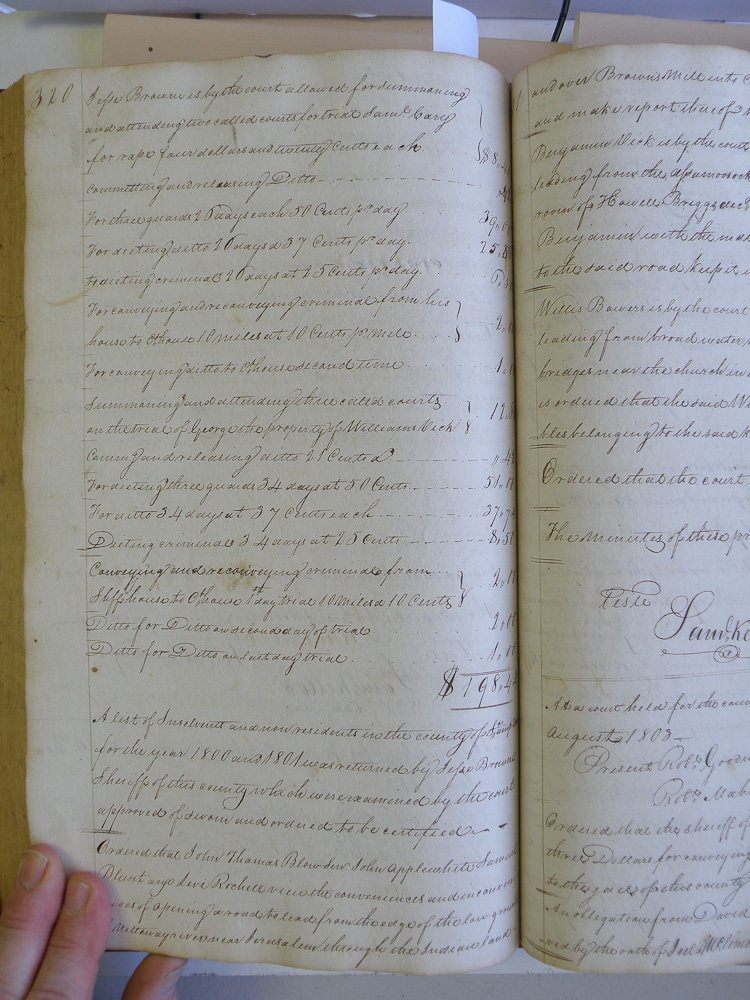 320
Jesse Browne is by the court allowed for summoning
and attending two called courts for trial Saml. Cary
for rape four dollars and twenty Cents each. $8,4
Committing and releasing Ditto
For three guards 26 days each 50 Cents pr. day 39,0
For dieting ditto 26 days a 37 Cents pr. day.
to dieting criminal 26 days at 25 Cents pr. day. 6,5
For conveying and reconveying criminal from his
house to Ct. house 10 miles at 10 Cents pr. Mile. 2,
For conveying ditto to Ct. house second time 1,
Summoning and attending three called courts
on the trial of George the property of William Vick
Commg. and releasing ditto 21 Cents a 4
For dieting three guards 34 days at 50 Cents 51,00
For ditto 34 days at 37 Cents each 37,7
Dieting criminal 34 days at 25 Cents 8,50
Conveying and reconveying criminal from
Shffs house to Ct. house 1st day trial 10 Miles a 10 Cents 2,0
Ditto for Ditto on second day of trial 2,00
Ditto for Ditto on last day trial. 1,00
$198,4
A list of Insolvents and non residents in the county of
for the year 1800 and 1801 was returned by Jesse Browne
Sheriff of this county which were examined by the court
approved of sworn and ordered to be certified
Ordered that John Thomas Blow Senr John Applewhite Samuel
Blunt and Love Rochell view the conveniences and inconven
ces of opening a road to lead from the edge of the low ground
Nottoway river near Jerusalem through the Indian land
and over Browns Mill into
and make report thereof
Benjamin Vick is by the court
leading from the assamoosock
room of Howell Briggs dec
Benjamin with the male
to the said road keep it in
Willis Bowers is by the court
leading from broad water
bridges near the church in
is ordered that the said Wi
bles belonging to the said
Ordered that the court
The minutes of these pr
Teste
Saml. Ke
At a court held for the coun
August 1803
Present Robt. Goodw
Robt. Mab
Ordered that the sheriff of
three Dollars for conveying
to the jail of this county
An obligation from David
ved by the oath of Joel McLemo